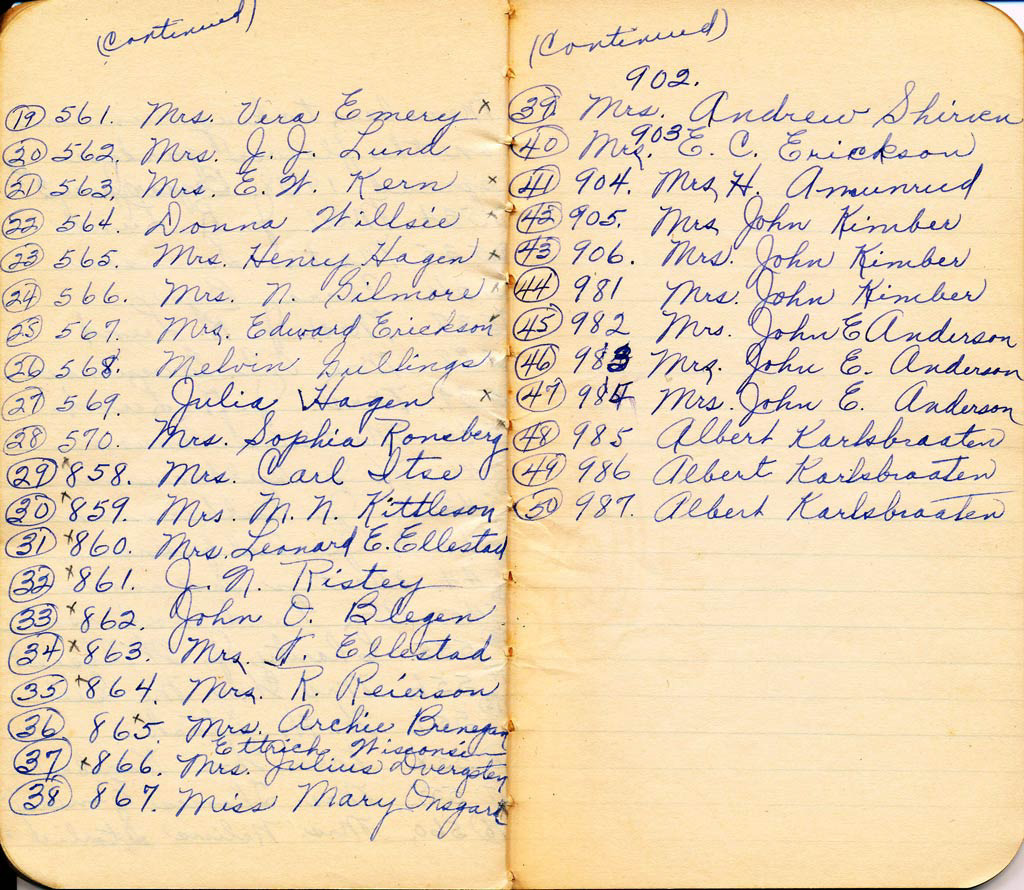 (Continued)
19 561. Mrs. Vera Emery x
20 562. Mrs. J. J. Lund
21 563. Mrs. E. W. Kern x
22 564. Donna Willsie x
23 565. Mrs. Henry Hagen x
24 566. Mrs. N. Gilmore x
25 567. Mrs. Edward Erickson
26 568. Melvin Gullings x
27 569. Julia Hagen x
28 570. Mrs. Sophia Ronsberg
29 x 858. Mrs. Carl Itse
30 x 859. Mrs. M. N. Kittleson
31 x 860. Mrs. Leonard E. Ellestad
32 x 861. J. N. Ristey
33 x 862. John O. Blegen
34 x 863. Mrs. T. Ellestad
35 x 864. Mrs. R. Reierson
36 865. x Mrs. Archie Brenegan
Ettrick, Wisconsin
37 x 866. Mrs. Julius Dvergsten
38 867. Miss Mary Onsgard
(Continued)
902.
39 Mrs. Andrew Shirven
40 Mrs. 903 E. C. Erickson
41 904. Mrs. H. Amunrud
42 905. Mrs. John Kimber
43 906. Mrs. John Kimber
44 981 Mrs. John Kimber
45 982 Mrs. John E Anderson
46 983 Mrs. John E. Anderson
47 984 Mrs. John E. Anderson
48 985 Albert Karlsbraaten
49 986 Albert Karlsbraaten
50 987. Albert Karlsbraaten